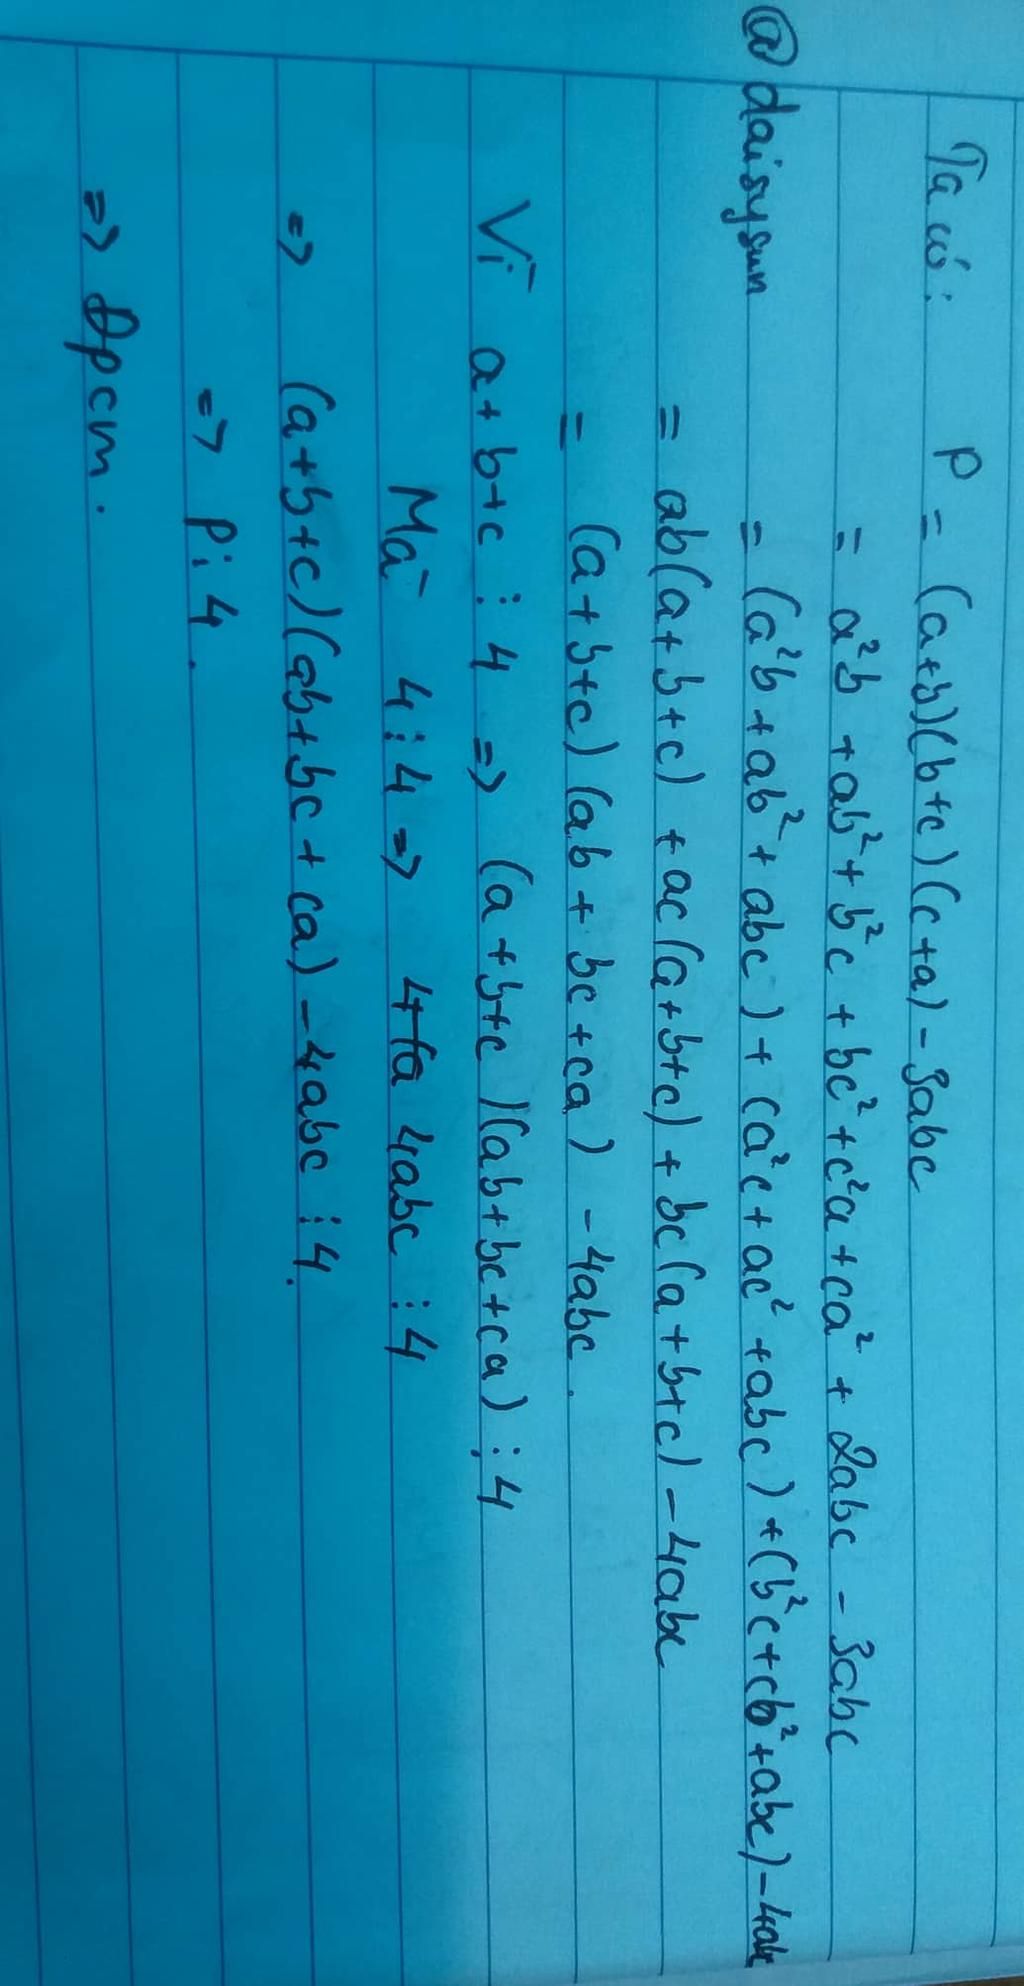 Ta có: P = (a+b)(b+c)(c+a) - 3abc
= a²b + ab² + b²c + bc² + c²a + ca² + 2abc - 3abc
@daisysun = (a²b + ab² + abc) + (a²c + ac² + abc) + (b²c + cb² + abc) - 4abc
= ab(a+b+c) + ac(a+b+c) + bc(a+b+c) - 4abc
= (a+b+c)(ab+bc+ca) - 4abc.
Vì a+b+c ⋮ 4 => (a+b+c)(ab+bc+ca) ⋮ 4
Mà 4 ⋮ 4 => 4abc ⋮ 4
=> (a+b+c)(ab+bc+ca) - 4abc ⋮ 4.
=> P ⋮ 4.
=> Đpcm.